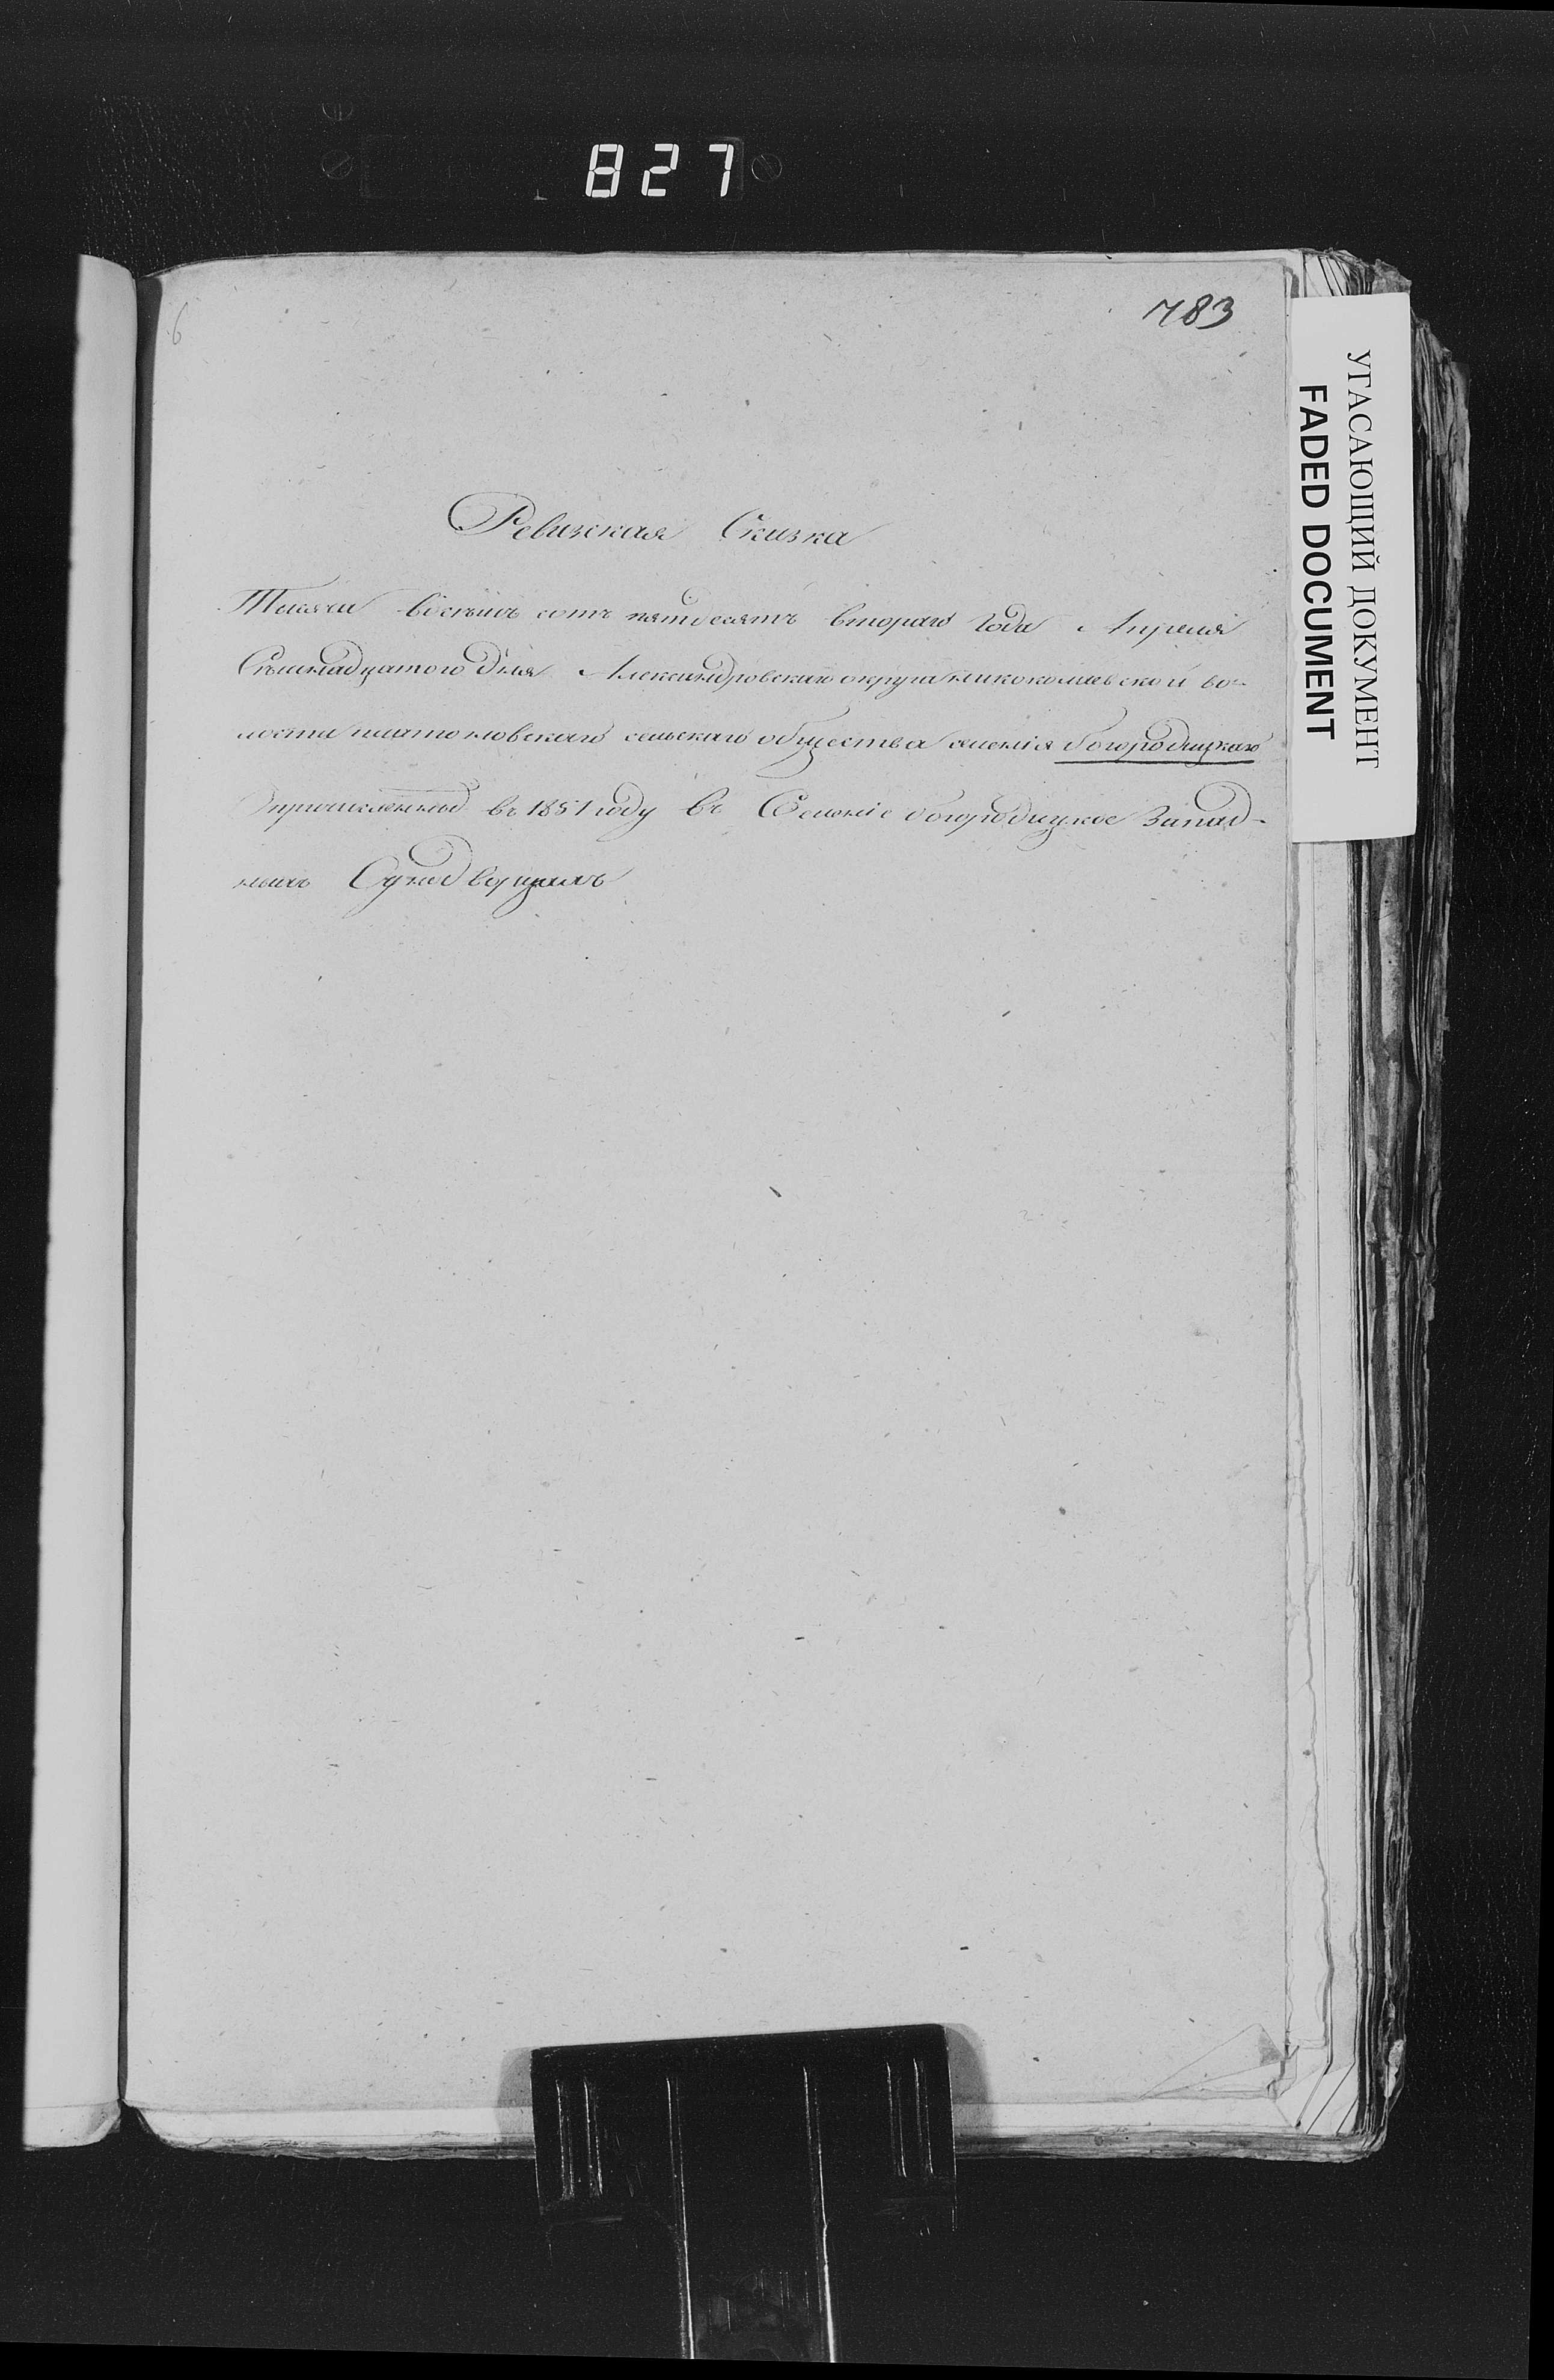 827
6
783
УГАСАЮЩИЙ ДОКУМЕНТ
FADED DOCUMENT
Ревизская Сказка
Тысяча восѣмь сотъ пятдесятъ втораго Года Апреля
Сѣмнадцатого Дня Александровскаго округа во-
лости сельскаго общества селенія богородицкаго
Опричисленной въ 1851 году въ Селеніе богородицкое Запад-
ныхъ